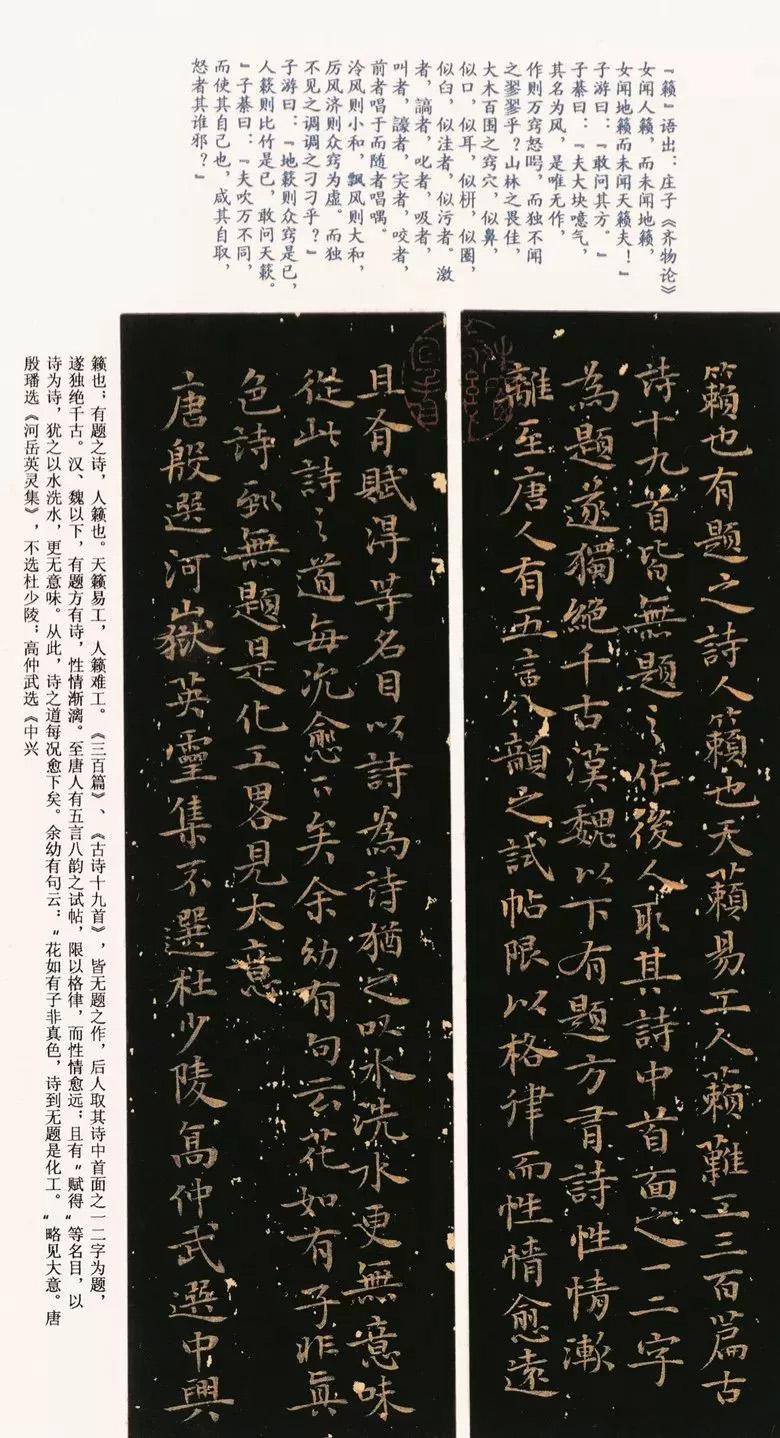 『籁』语出：庄子《齐物论》
女闻人籁，而未闻地籁，
女闻地籁而未闻天籁夫！"
子游曰："敢问其方。"
子綦曰："夫大块噫气，
其名为风，是唯无作，
作则万窍怒呺，而独不闻
之翏翏乎？山林之畏佳，
大木百围之窍穴，似鼻，
似口，似耳，似枅，似圈，
似臼，似洼者，似污者。激
者，謞者，叱者，吸者，
叫者，譹者，宎者，咬者，
前者唱于而随者唱喁。
泠风则小和，飘风则大和，
厉风济则众窍为虚。而独
不见之调调之刁刁乎？"
子游曰："地籁则众窍是已，
人籁则比竹是已，敢问天籁。
"子綦曰："夫吹万不同，
而使其自己也，咸其自取，
怒者其谁邪？"
籟也有题之詩人籟也天籟易工人籟難工三百篇古
詩十九首皆無題之作後人取其詩中首面之一二字
為題遂獨絶千古漢魏以下有題方有詩性情漸
離至唐人有五言八韻之試帖限以格律而性情愈遠
且有賦得等名目以詩為詩猶之以水洗水更無意味
從此詩之道每况愈下矣余幼有句云花如有子非真
色詩到無題是化工畧見大意
唐殷選河嶽英靈集不選杜少陵高仲武選中興
籁也；有题之诗，人籁也。天籁易工，人籁难工。《三百篇》、《古诗十九首》，皆无题之作，后人取其诗中首面之一二字为题，
遂独绝千古。汉、魏以下，有题方有诗，性情渐漓。至唐人有五言八韵之试帖，限以格律，而性情愈远；且有"赋得"等名目，以
诗为诗，犹之以水洗水，更无意味。从此，诗之道每况愈下矣。余幼有句云："花如有子非真色，诗到无题是化工。"略见大意。唐
殷璠选《河岳英灵集》，不选杜少陵；高仲武选《中兴